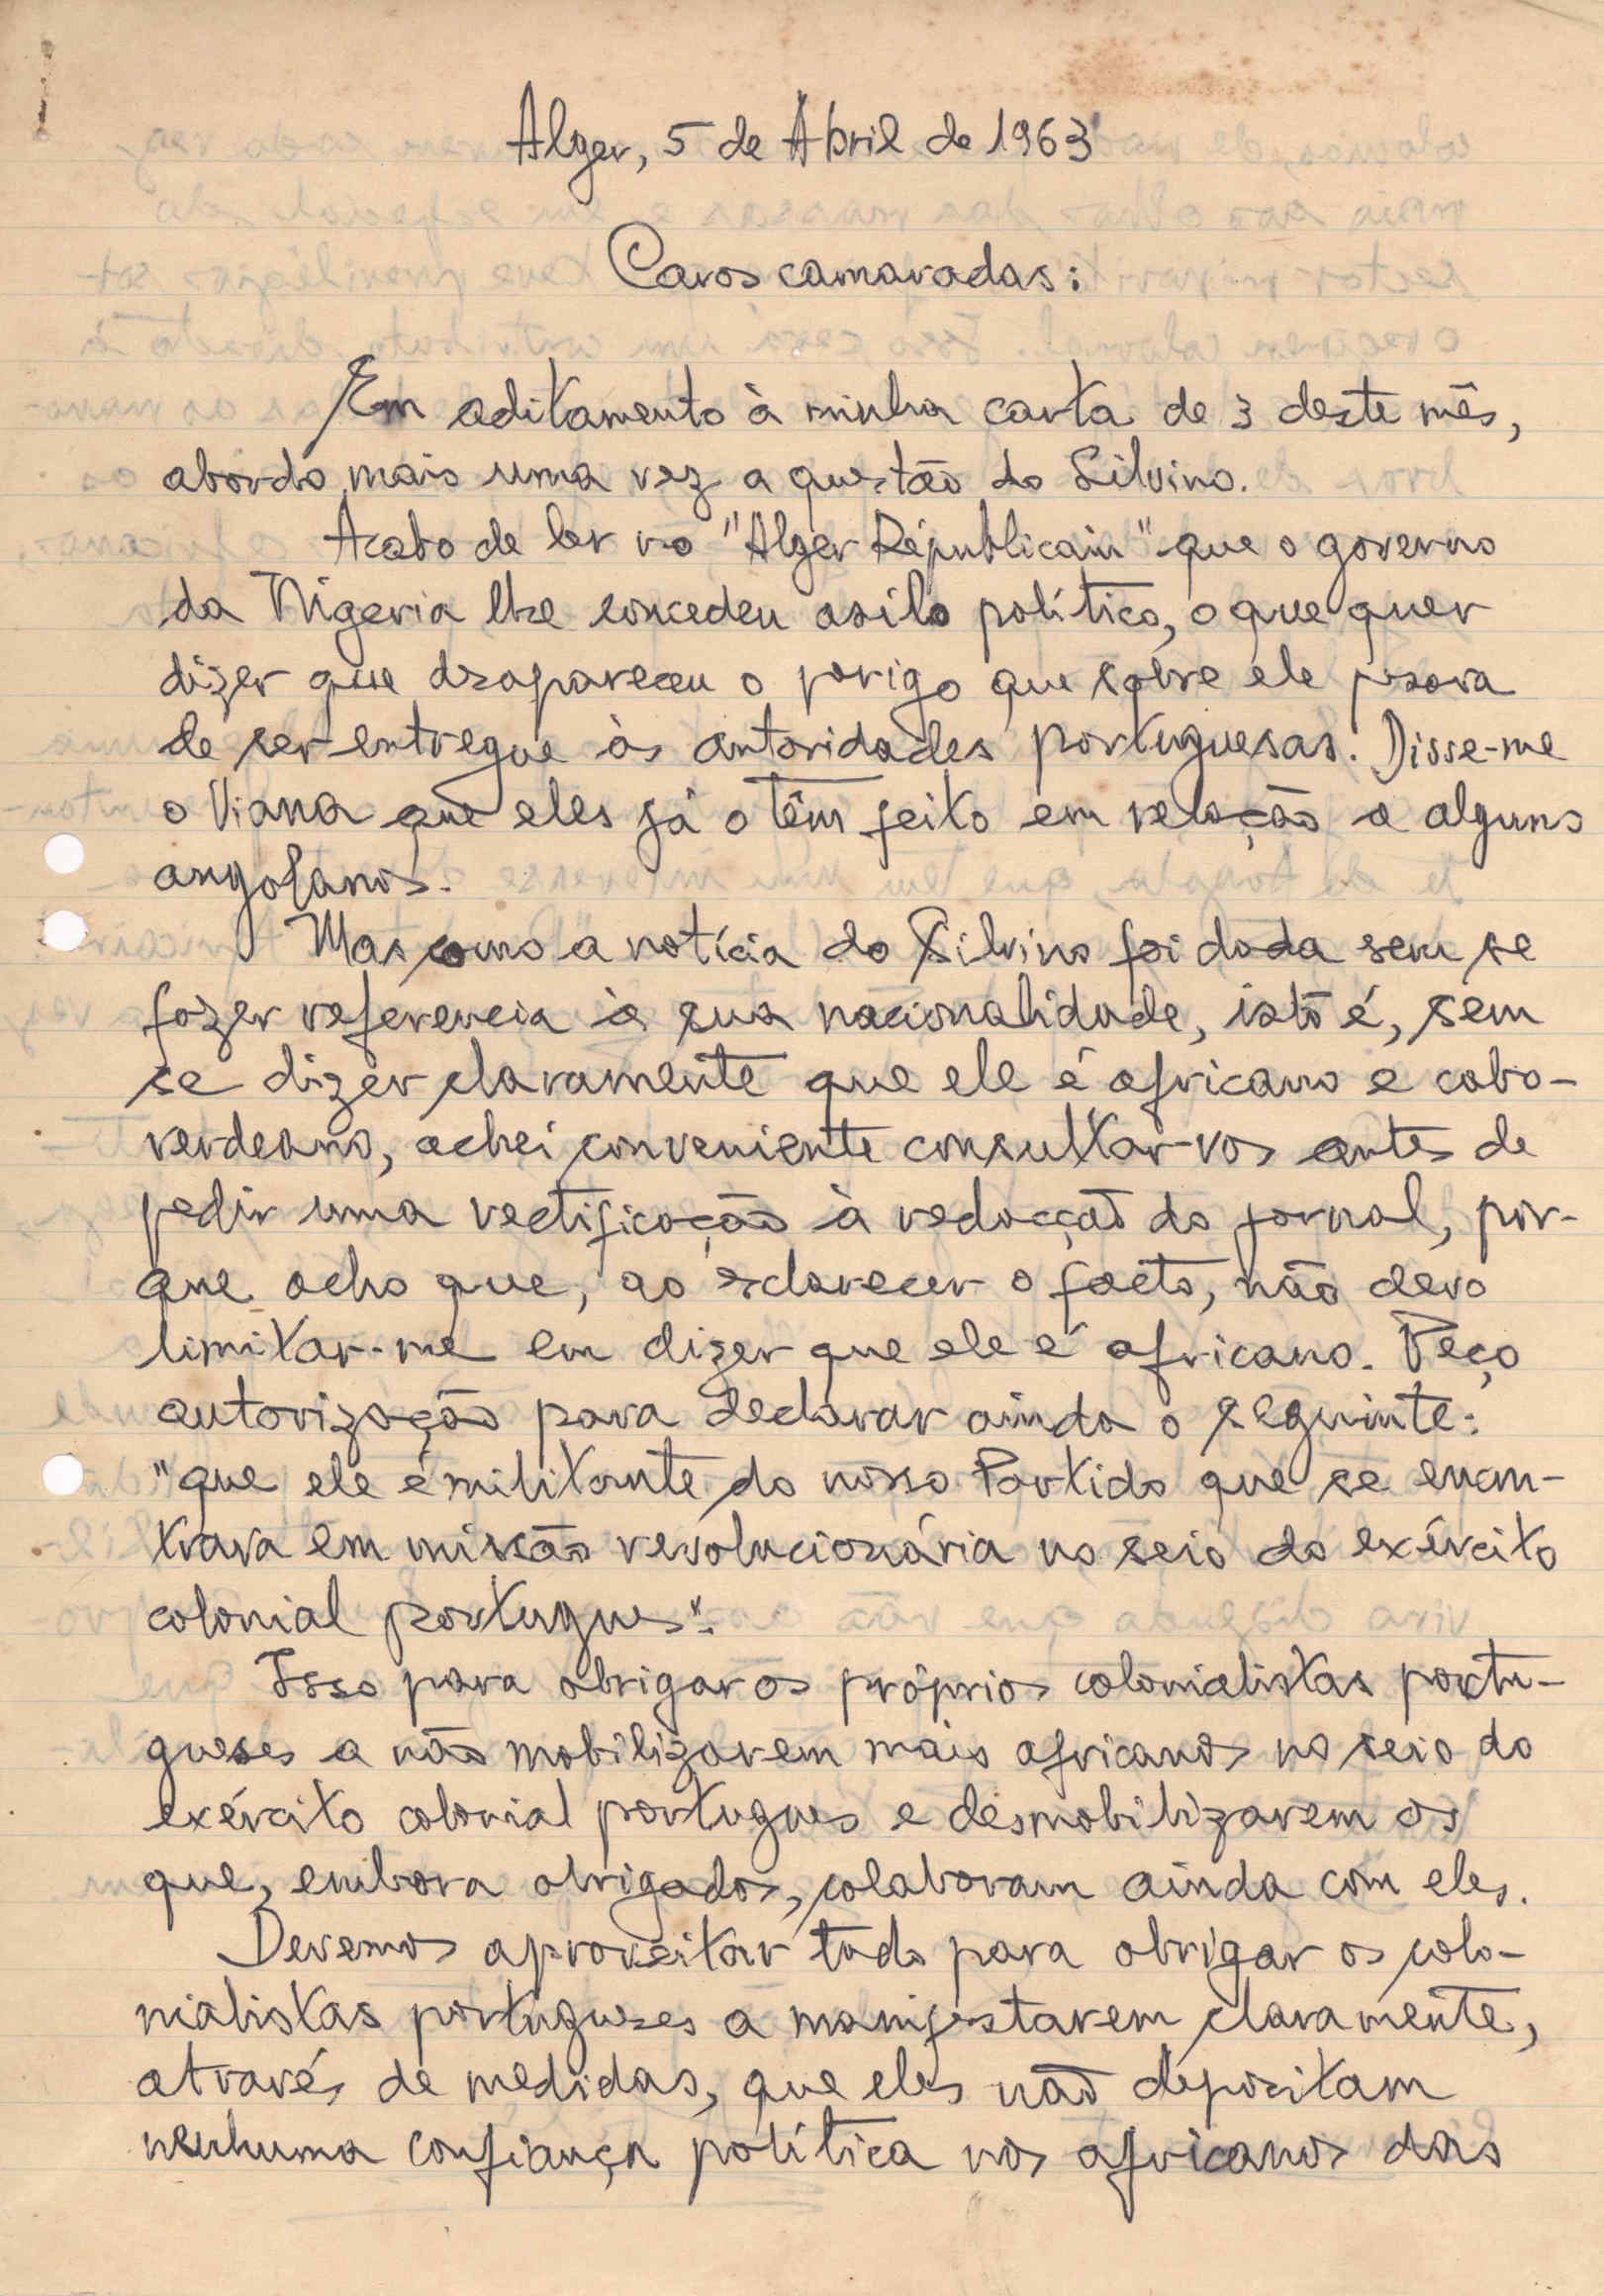 Alger, 5 de Abril de 1963
Caros camaradas:
Em aditamento à minha carta de 3 deste mês,
abordo mais uma vez a questão do Silvino.
Acabo de ler no "Alger Républicain" que o governo
da Nigeria lhe concedeu asilo político, o que quer
dizer que desapareceu o perigo que sôbre ele pesava
de ser entregue às autoridades portuguesas. Disse-me
o Viana que eles já o têm feito em relação a alguns
angolanos.
Mas como a notícia do Silvino foi dada sem se
fazer referencia à sua nacionalidade, isto é, sem
se dizer claramente que ele é africano e cabo-
verdeano, achei conveniente consultar-vos antes de
pedir uma rectificação à redacção do jornal, por-
que acho que, ao esclarecer o facto, não devo
limitar-me em dizer que ele é africano. Peço
autorização para declarar ainda o seguinte:
"que ele é militante do nosso Partido que se encon-
trava em missão revolucionária no seio do exército
colonial portugues".
Isso para obrigar os próprios colonialistas portu-
gueses a não mobilizarem mais africanos no seio do
exército colonial portugues e desmobilizarem os
que, embora obrigados, colaboram ainda com eles.
Devemos aproveitar tudo para obrigar os colo-
nialistas portugueses a manifestarem claramente,
através de medidas, que eles não depositam
nenhuma confiança política nos africanos das